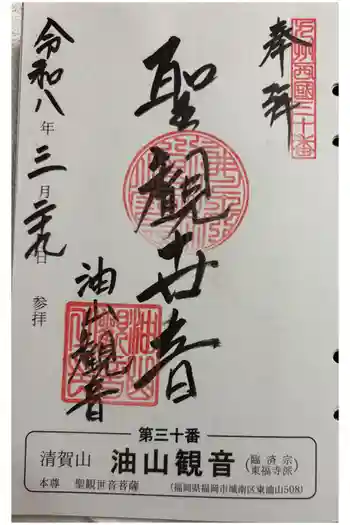 九州西國三十番
奉拝
聖觀世音
油山觀音
令和八年三月二十九日
参拝
第三十番
清賀山 油山観音 (臨済宗 東福寺派)
本尊 聖観世音菩薩 (福岡県福岡市城南区東油山508)